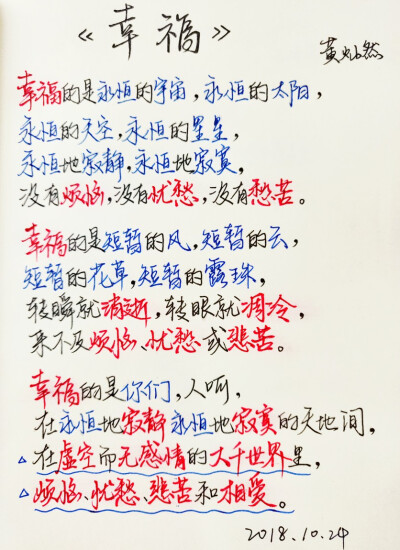 《幸福》
黄灿然
幸福的是永恒的宇宙，永恒的太阳，
永恒的天空，永恒的星星，
永恒地寂静，永恒地寂寞，
没有烦恼，没有忧愁，没有愁苦。
幸福的是短暂的风，短暂的云，
短暂的花草，短暂的露珠，
转瞬就消逝，转眼就凋冷，
来不及烦恼、忧愁或悲苦。
幸福的是你们，人呵，
在永恒地寂静永恒地寂寞的天地间，
在虚空而无感情的大千世界里，
烦恼、忧愁、悲苦和相爱。
2018.10.24